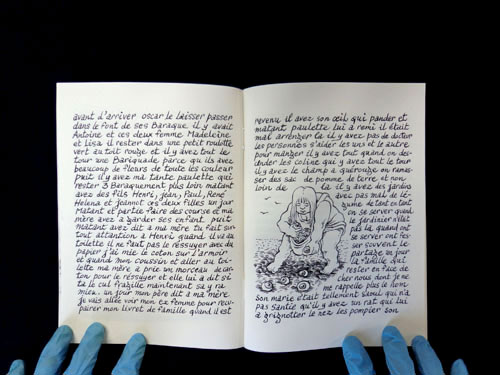 avant d'arriver oscar le laisser passer
dans le font de ses Baraque il y avait
Antoine et ces deux femme Madeleine
et lisa il rester dans une petit roulotte
vert au toit rouge et il y avez tout le
tour une Bariquade parce qu'ils avez
beaucoup de fleurs de toute les couleur
puit il y avez ma tante paulette qui
rester 3 Baraquement plus loin matant
avez des fils Henri, jean, Paul, René
Helena et jeannot ces deux filles un jour
Matant et partie faire des course et ma
mère avez a garder ses enfant puit
Matant avez dit a ma mère tu fait sur-
tout attantion a Henri quand il va au
toilette il ne faut pas le ressuyer avec du
papier j'ai mie le coton sur l'armoir
et quand mon coussin et aller au toi-
lette ma mère a prie un morceau de car-
ton pour le ressuyer et elle lui a dit si
ta le cul fragille maintenant sa y ra
mieux un jour mon père dit a ma mère
je vais allée voir mon ex femme pour recu-
parer mon livret de famille quand il est
revenu il avez son œil qui pander et
matant paulette lui a remi il était
mal arrenger la il y avez pas de docteur
les personnes s'aider les uns et le autre
pour manger il y avez tout quand on des-
cender les coline qui y avez tout le tour
il y avez le champ a queroupe on ramas-
ser des sac de pomme de terre et non
loin de la il y avez des jardins
avec pas mal de lé-
gume de tant en tant
on se server quand
le jardinier n'état
pas la quand ont
se server ont fes-
ser souvent le
partage un jour
la famille qui
rester en face de
cher nous dont je ne
me rappelle plus le nom
son marie était tellement saoul qui n'a
pas santie qu'il y avez un rat que lui
a grignotter le nez les pompier son